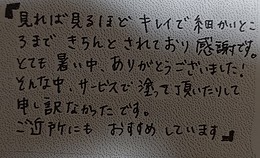 『見れば見るほど キレイで細かいとこ
ろまで きちんと されており 感謝です。
とても 暑い中、ありがとうございました!
そんな中、サービスで 塗って頂いたりして
申し訳なかったです。
ご近所にも おすすめ しています』